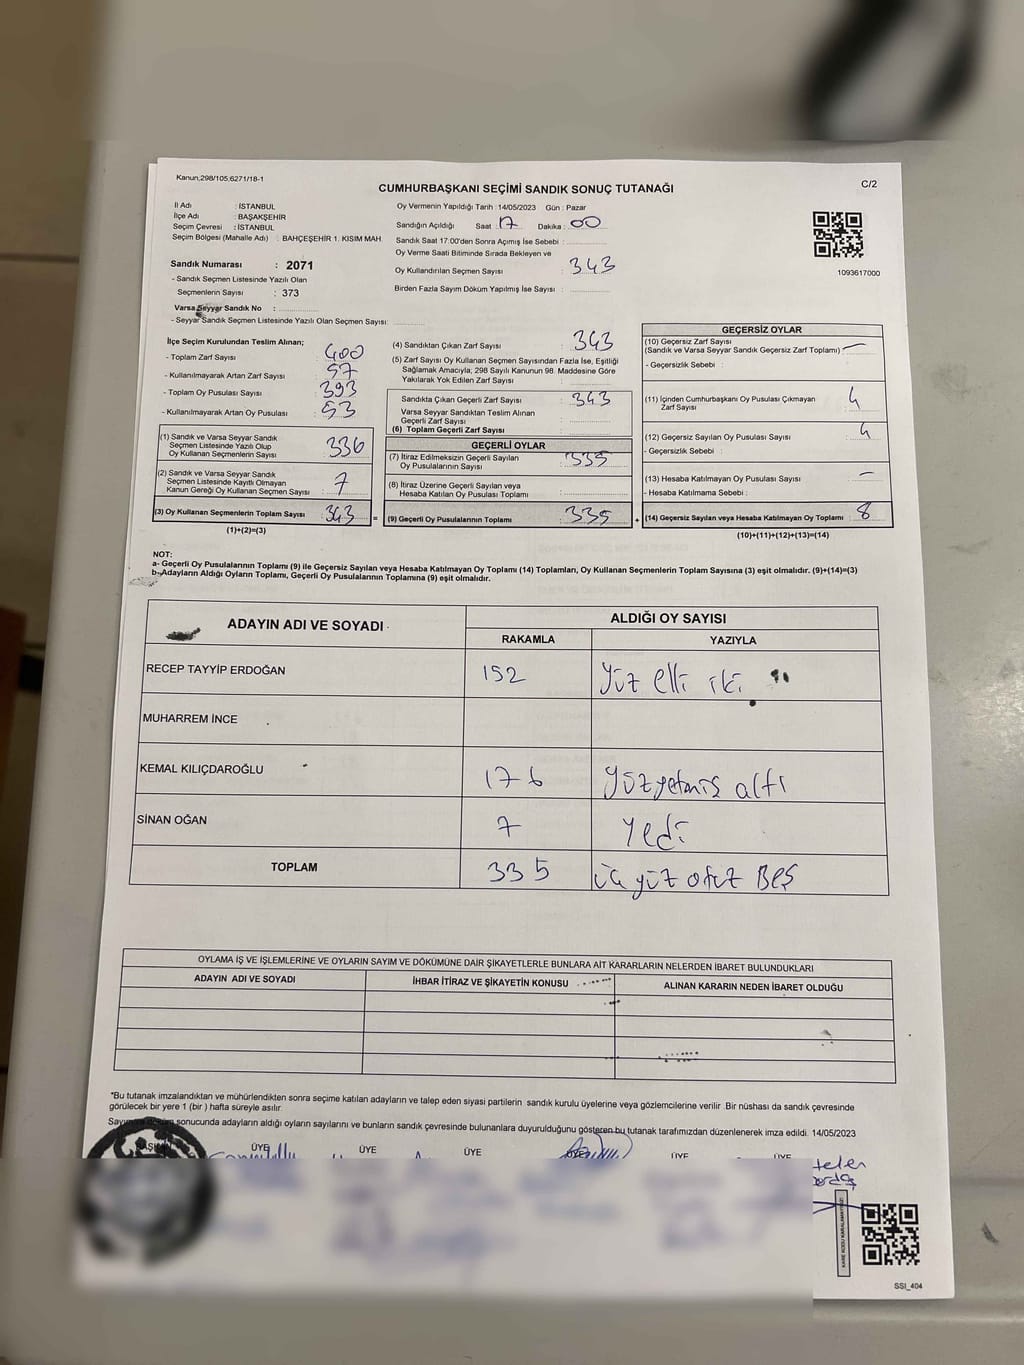 Kanun;298/105,6271/18-1
C/2
CUMHURBAŞKANI SEÇİMİ SANDIK SONUÇ TUTANAĞI
İl Adı : İSTANBUL
İlçe Adı : BAŞAKŞEHİR
Seçim Çevresi : İSTANBUL
Seçim Bölgesi (Mahalle Adı) : BAHÇEŞEHİR 1. KISIM MAH.
Sandık Numarası : 2071
- Sandık Seçmen Listesinde Yazılı Olan
Seçmenlerin Sayısı : 373
Varsa Seyyar Sandık No :
- Seyyar Sandık Seçmen Listesinde Yazılı Olan Seçmen Sayısı:
Oy Vermenin Yapıldığı Tarih : 14/05/2023 Gün : Pazar
Sandığın Açıldığı Saat : 17 Dakika : 00
Sandık Saat 17:00'den Sonra Açımış İse Sebebi :
Oy Verme Saati Bitiminde Sırada Bekleyen ve
Oy Kullandırılan Seçmen Sayısı : 343
Birden Fazla Sayım Döküm Yapılmış İse Sayısı :
1093617000
İlçe Seçim Kurulundan Teslim Alınan;
- Toplam Zarf Sayısı : 400
- Kullanılmayarak Artan Zarf Sayısı : 57
- Toplam Oy Pusulası Sayısı : 393
- Kullanılmayarak Artan Oy Pusulası : 53
(1) Sandık ve Varsa Seyyar Sandık
Seçmen Listesinde Yazılı Olup
Oy Kullanan Seçmenlerin Sayısı : 336
(2) Sandık ve Varsa Seyyar Sandık
Seçmen Listesinde Kayıtlı Olmayan
Kanun Gereği Oy Kullanan Seçmen Sayısı : 7
(3) Oy Kullanan Seçmenlerin Toplam Sayısı : 343 =
(1)+(2)=(3)
(4) Sandıktan Çıkan Zarf Sayısı : 343
(5) Zarf Sayısı Oy Kullanan Seçmen Sayısından Fazla İse, Eşitliği
Sağlamak Amacıyla; 298 Sayılı Kanunun 98. Maddesine Göre
Yakılarak Yok Edilen Zarf Sayısı :
Sandıkta Çıkan Geçerli Zarf Sayısı : 343
Varsa Seyyar Sandıktan Teslim Alınan
Geçerli Zarf Sayısı :
(6) Toplam Geçerli Zarf Sayısı :
GEÇERLİ OYLAR
(7) İtiraz Edilmeksizin Geçerli Sayılan
Oy Pusulalarının Sayısı : 335
(8) İtiraz Üzerine Geçerli Sayılan veya
Hesaba Katılan Oy Pusulası Toplamı :
(9) Geçerli Oy Pusulalarının Toplamı : 335 +
GEÇERSİZ OYLAR
(10) Geçersiz Zarf Sayısı
(Sandık ve Varsa Seyyar Sandık Geçersiz Zarf Toplamı) : —
- Geçersizlik Sebebi :
(11) İçinden Cumhurbaşkanı Oy Pusulası Çıkmayan
Zarf Sayısı : 4
(12) Geçersiz Sayılan Oy Pusulası Sayısı : 4
- Geçersizlik Sebebi :
(13) Hesaba Katılmayan Oy Pusulası Sayısı : —
- Hesaba Katılmama Sebebi :
(14) Geçersiz Sayılan veya Hesaba Katılmayan Oy Toplamı : 8
(10)+(11)+(12)+(13)=(14)
NOT:
a- Geçerli Oy Pusulalarının Toplamı (9) ile Geçersiz Sayılan veya Hesaba Katılmayan Oy Toplamı (14) Toplamları, Oy Kullanan Seçmenlerin Toplam Sayısına (3) eşit olmalıdır. (9)+(14)=(3)
b- Adayların Aldığı Oyların Toplamı, Geçerli Oy Pusulalarının Toplamına (9) eşit olmalıdır.
ADAYIN ADI VE SOYADI ALDIĞI OY SAYISI
RAKAMLA YAZIYLA
RECEP TAYYİP ERDOĞAN 152 Yüz elli iki
MUHARREM İNCE
KEMAL KILIÇDAROĞLU 176 yüzyetmiş altı
SİNAN OĞAN 7 Yedi
TOPLAM 335 üç yüz otuz BEŞ
OYLAMA İŞ VE İŞLEMLERİNE VE OYLARIN SAYIM VE DÖKÜMÜNE DAİR ŞİKAYETLERLE BUNLARA AİT KARARLARIN NELERDEN İBARET BULUNDUKLARI
ADAYIN ADI VE SOYADI İHBAR İTİRAZ VE ŞİKAYETİN KONUSU ALINAN KARARIN NEDEN İBARET OLDUĞU
*Bu tutanak imzalandıktan ve mühürlendikten sonra seçime katılan adayların ve talep eden siyasi partilerin sandık kurulu üyelerine veya gözlemcilerine verilir. Bir nüshası da sandık çevresinde
görülecek bir yere 1 (bir ) hafta süreyle asılır.
Sayım ve döküm sonucunda adayların aldığı oyların sayılarını ve bunların sandık çevresinde bulunanlara duyurulduğunu gösteren bu tutanak tarafımızdan düzenlenerek imza edildi. 14/05/2023
BAŞKAN ÜYE ÜYE ÜYE ÜYE ÜYE
KARE KODU KARALAMAYINIZ
SSI_404